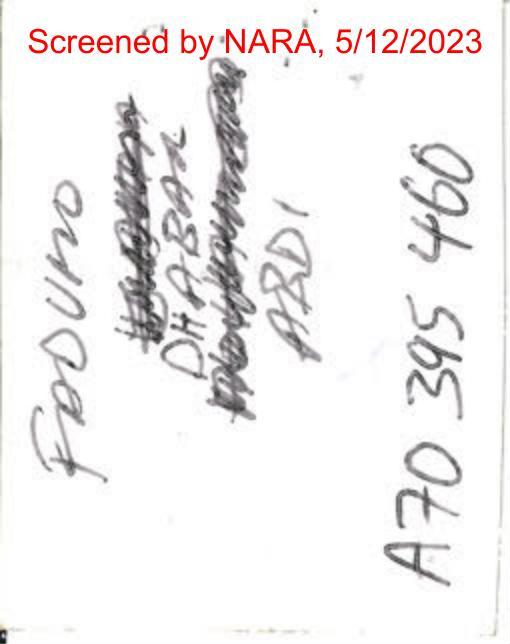 Screened by NARA, 5/12/2023
FADUMO
DHABAR
ABDI
A70 395 460